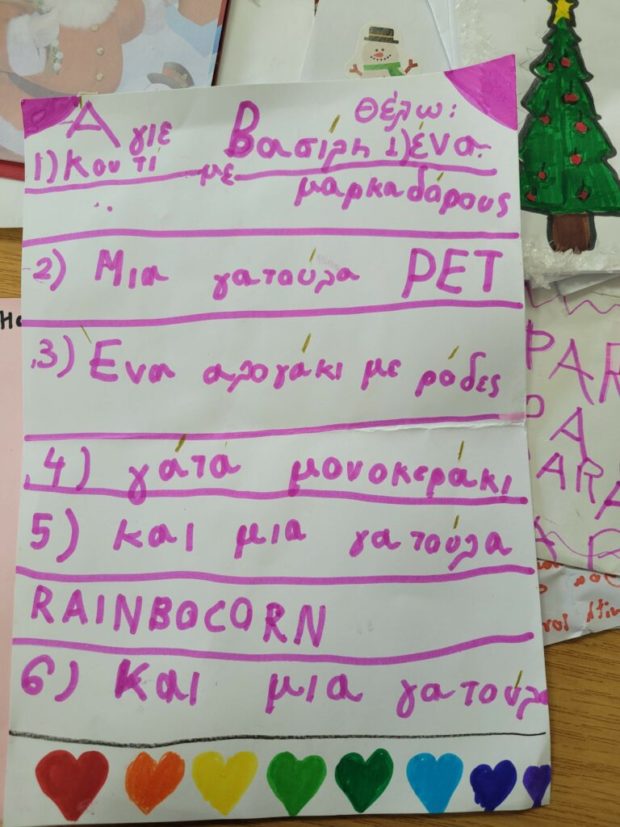 Άγιε Βασίλη Θέλω: 1) ένα
1) κουτί με μαρκαδόρους
2) Μια γατούλα PET
3) Ένα αλογάκι με ρόδες
4) γάτα μονοκεράκι
5) και μια γατούλα
RAINBOCORN
6) και μια γατούλα
PAR
PA
PARA